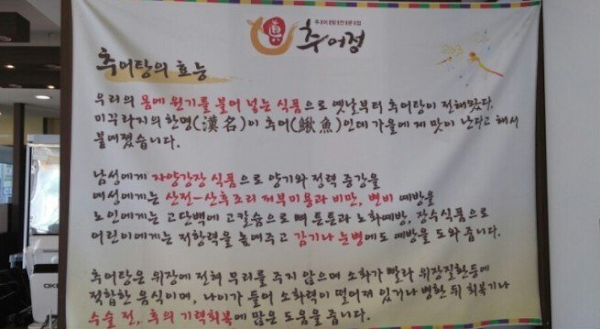 추어정
추어탕의 효능
우리의 몸에 원기를 불어 넣는 식품으로 옛날부터 추어탕이 전해왔다.
미꾸라지의 한명(漢名)이 추어(鰍魚)인데 가을에 제 맛이 난다고 해서
붙여졌습니다.
남성에게 자양강장 식품으로 양기와 정력 증강을
여성에게는 산전-산후조리 피부미용과 비만, 변비 예방을
노인에게는 고단백에 고칼슘으로 뼈 튼튼과 노화예방, 장수식품으로
어린이에게는 저항력을 높여주고 감기나 눈병에도 예방을 도와 줍니다.
추어탕은 위장에 전혀 무리를 주지 않으며 소화가 빨라 위장질환등에
적합한 음식이며, 나이가 들어 소화력이 떨어져 있거나 병환 뒤 회복기나
수술 전, 후의 기력회복에 많은 도움을 줍니다.